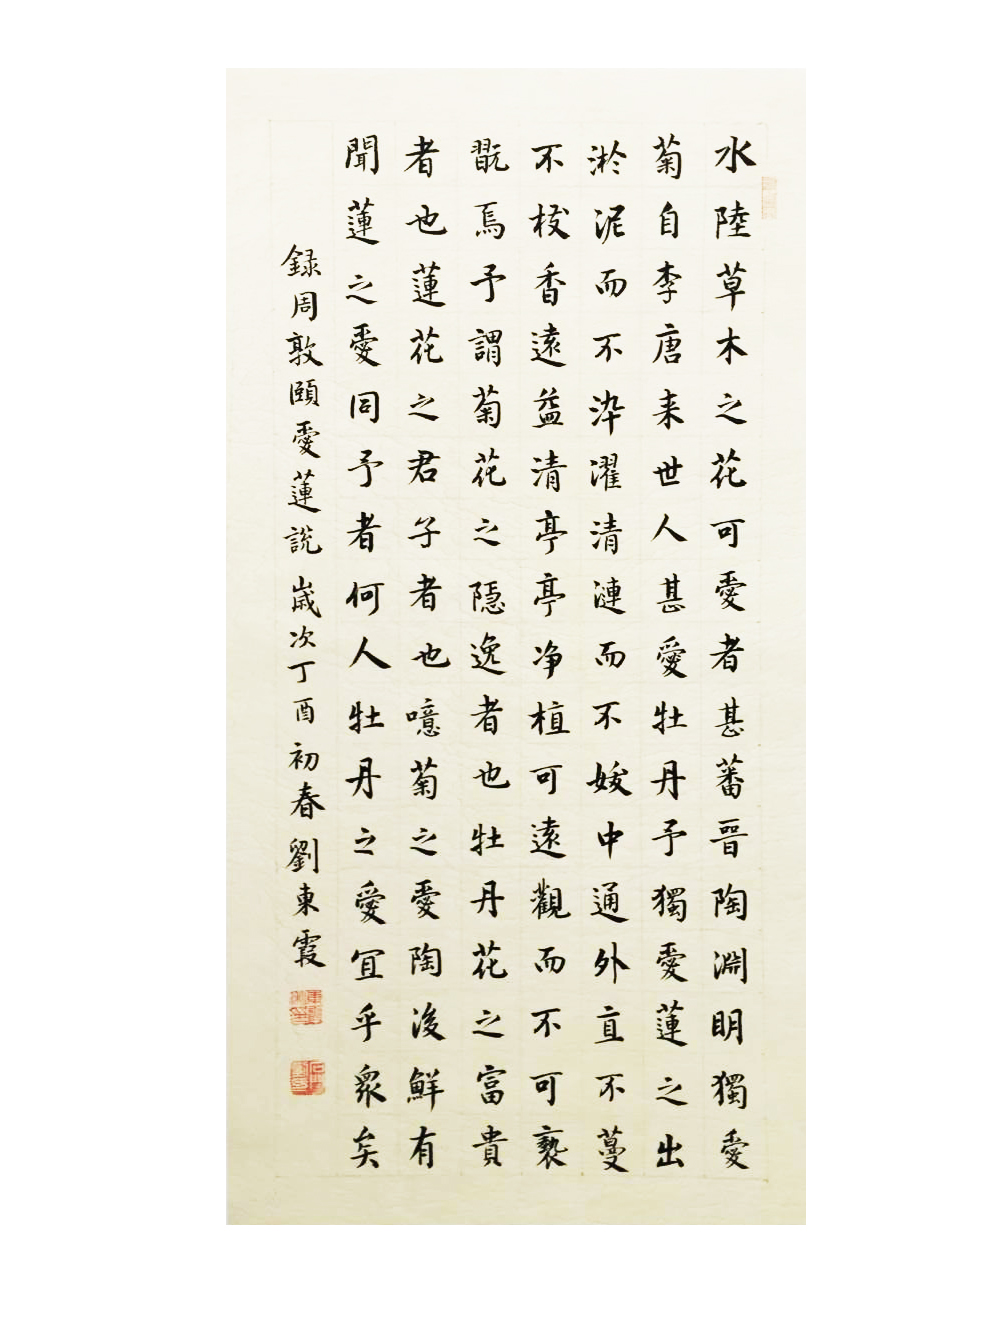 水陸草木之花可愛者甚蕃晉陶淵明獨愛
菊自李唐来世人甚愛牡丹予獨愛蓮之出
淤泥而不染濯清漣而不妖中通外直不蔓
不枝香遠益清亭亭净植可遠觀而不可褻
翫焉予謂菊花之隱逸者也牡丹花之富貴
者也蓮花之君子者也噫菊之愛陶後鮮有
聞蓮之愛同予者何人牡丹之愛宜乎衆矣
録周敦頤愛蓮說歲次丁酉初春劉東霞